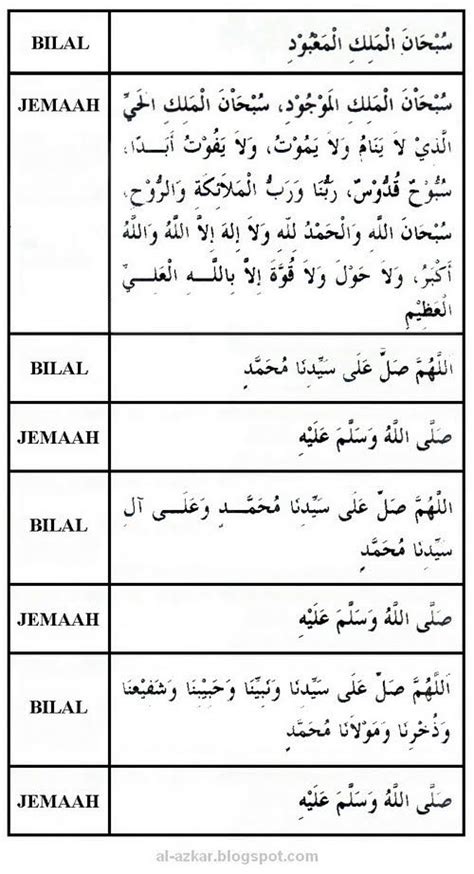 BILAL
سُبْحَانَ الْمَلِكِ الْمَعْبُوْدِ
JEMAAH
سُبْحَاْنَ الْمَلِكِ الْمَوْجُوْدِ، سُبْحَاْنَ الْمَلِكِ الْحَيِّ
الَّذِيْ لاَ يَنَامُ وَلاَ يَمُوْتُ، وَلاَ يَفُوْتُ أَبَـدًا،
سُبُّوْحٌ قُدُّوْسٌ، رَبُّنَا وَرَبُّ الْمَلاَئِكَةِ وَالرُّوْحِ،
سُبْحَانَ اللَّهِ وَالْحَمْدُ لِلَّهِ وَلاَ إِلهَ إِلاَّ اللَّهُ وَاللَّهُ
أَكْبَرُ، وَلاَ حَوْلَ وَلاَ قُوَّةَ إِلاَّ بِاللَّـهِ الْعَلِـيِّ
الْعَظِيْمِ
BILAL
اَللَّهُمَّ صَلِّ عَلَى سَيِّدِنَا مُحَمَّدٍ
JEMAAH
صَلَّى اللَّهُ وَسَلَّمَ عَلَيْهِ
BILAL
اللَّهُمَّ صَلِّ عَلَى سَيِّدِنَا مُحَمَّـدٍ وَعَلَـى آلِ
سَيِّدِنَا مُحَمَّدٍ
JEMAAH
صَلَّى اللَّهُ وَسَلَّمَ عَلَيْهِ
BILAL
اَللَّهُمَّ صَلِّ عَلَى سَيِّدِنَا وَنَبِيِّنَا وَحَبِيْبِنَا وَشَفِيْعِنَا
وَذُخْرِنَا وَمَوْلاَنَا مُحَمَّدٍ
JEMAAH
صَلَّى اللَّهُ وَسَلَّمَ عَلَيْهِ
al-azkar.blogspot.com